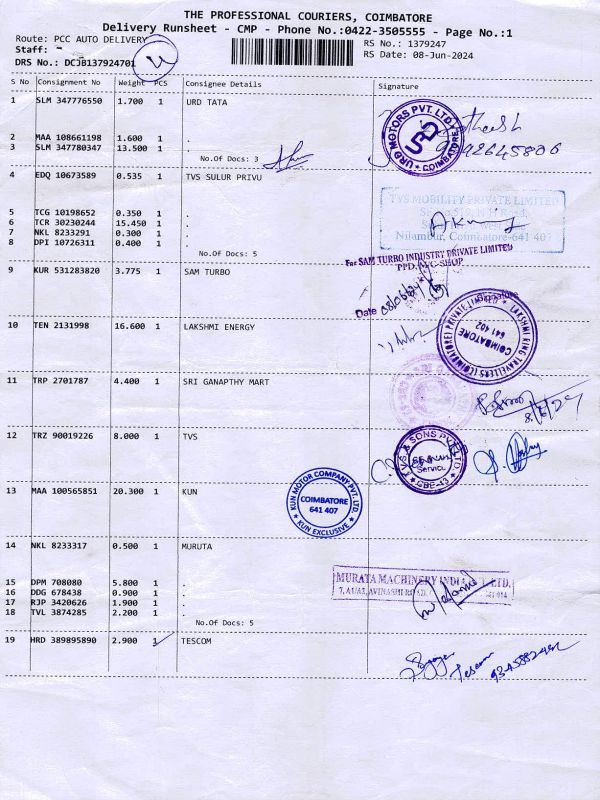 THE PROFESSIONAL COURIERS, COIMBATORE
Delivery Runsheet - CMP - Phone No.:0422-3505555 - Page No.:1
Route: PCC AUTO DELIVERY
RS No.: 1379247
Staff: -
RS Date: 08-Jun-2024
DRS No.: DCJB137924701
S No Consignment No Weight PCS Consignee Details Signature
1 SLM 347776550 1.700 1 URD TATA
2 MAA 108661198 1.600 1 .
3 SLM 347780347 13.500 1 .
No.Of Docs: 3
URD MOTORS PVT. LTD. COIMBATORE
4 EDQ 10673589 0.535 1 TVS SULUR PRIVU
TVS MOBILITY PRIVATE LIMITED
5 TCG 10198652 0.350 1 .
6 TCR 30230244 15.450 1 .
7 NKL 8233291 0.300 1 .
8 DPI 10726311 0.400 1 .
Nilambur, Coimbatore-641 407
No.Of Docs: 5
For SAM TURBO INDUSTRY PRIVATE LIMITED
9 KUR 531283820 3.775 1 SAM TURBO
Date 08/06/24
10 TEN 2131998 16.600 1 LAKSHMI ENERGY
LAKSHMI RING TRAVELLERS (COIMBATORE) PRIVATE LIMITED
COIMBATORE
641 402
11 TRP 2701787 4.400 1 SRI GANAPTHY MART
8/6/24
12 TRZ 90019226 8.000 1 TVS
T.V.S & SONS PVT LTD
13 MAA 100565851 20.300 1 KUN
KUN MOTOR COMPANY PVT. LTD.
COIMBATORE
641 407
KUN EXCLUSIVE
14 NKL 8233317 0.500 1 MURUTA
MURATA MACHINERY INDIA PVT. LTD.
15 DPM 708080 5.800 1 .
16 DDG 678438 0.900 1 .
17 RJP 3420626 1.900 1 .
18 TVL 3874285 2.200 1 .
No.Of Docs: 5
19 HRD 389895890 2.900 1 TESCOM